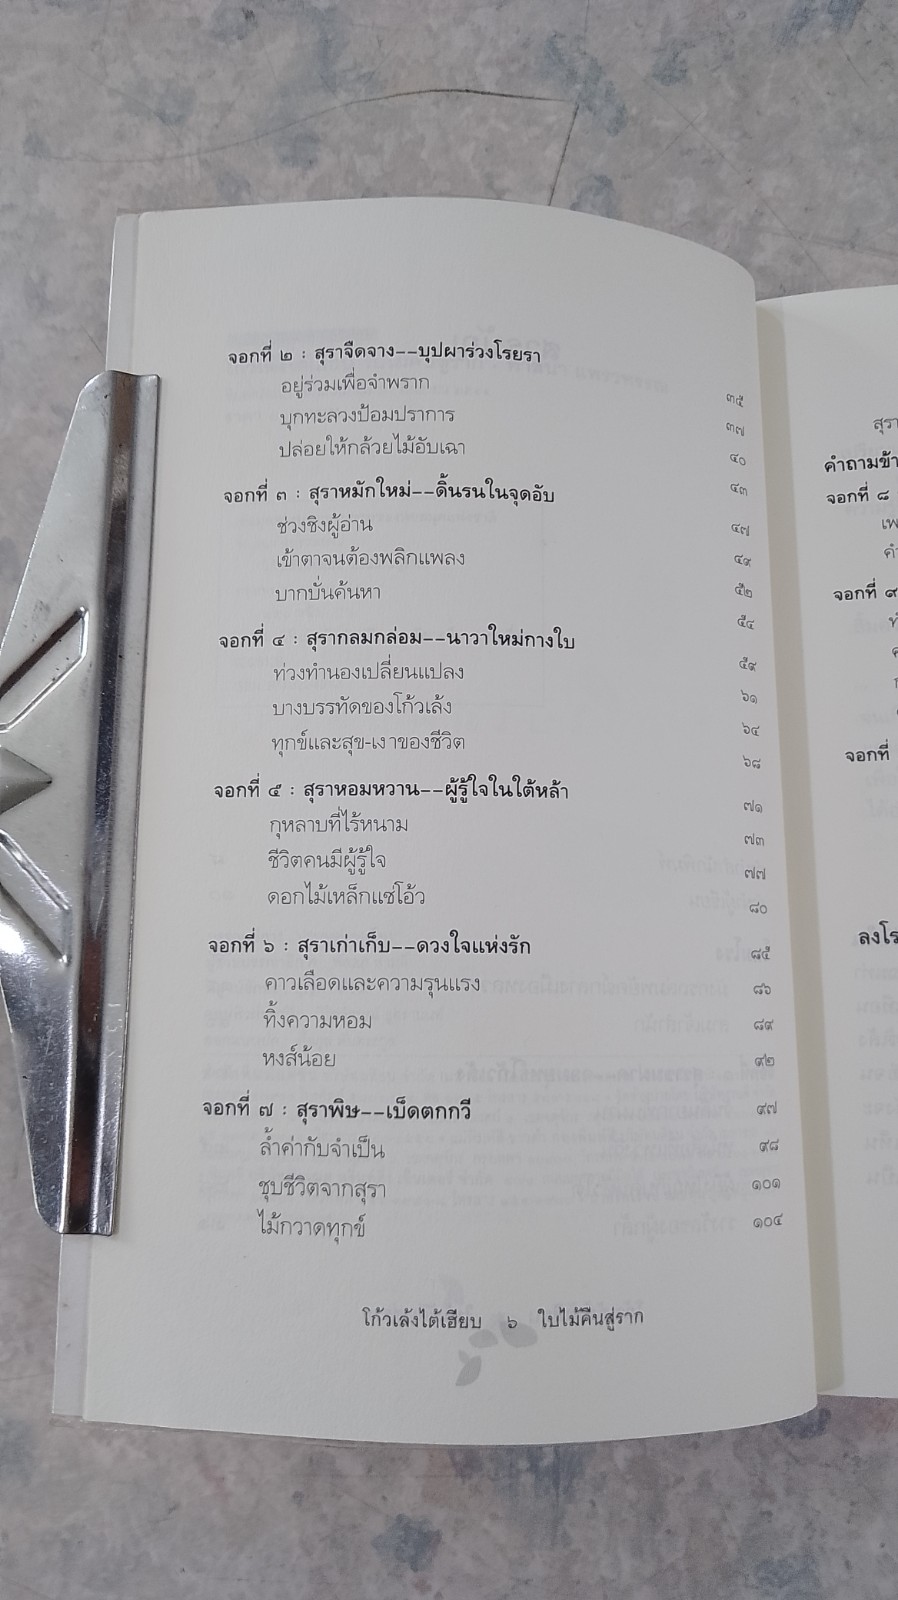 จอกที่ ๒ : สุราจืดจาง--บุปผาร่วงโรยรา ๓๕
อยู่ร่วมเพื่อจำพราก ๓๗
บุกทะลวงป้อมปราการ ๔๐
ปล่อยให้กล้วยไม้อับเฉา ๔๓
จอกที่ ๓ : สุราหมักใหม่--ดิ้นรนในจุดอับ ๔๗
ช่วงชิงผู้อ่าน ๔๙
เข้าตาจนต้องพลิกแพลง ๕๒
บากบั่นค้นหา ๕๔
จอกที่ ๔ : สุรากลมกล่อม--นาวาใหม่กางใบ ๕๙
ท่วงทำนองเปลี่ยนแปลง ๖๑
บางบรรทัดของโก้วเล้ง ๖๔
ทุกข์และสุข-เงาของชีวิต ๖๘
จอกที่ ๕ : สุราหอมหวาน--ผู้รู้ใจในใต้หล้า ๗๑
กุหลาบที่ไร้หนาม ๗๓
ชีวิตคนมีผู้รู้ใจ ๗๗
ดอกไม้เหล็กแซ่โอ้ว ๘๐
จอกที่ ๖ : สุราเก่าเก็บ--ดวงใจแห่งรัก ๘๕
คาวเลือดและความรุนแรง ๘๖
ทิ้งความหอม ๘๙
หงส์น้อย ๙๒
จอกที่ ๗ : สุราพิษ--เบ็ดตกกวี ๙๗
ล้ำค่ากับจำเป็น ๙๘
ชุบชีวิตจากสุรา ๑๐๑
ไม้กวาดทุกข์ ๑๐๔
โก้วเล้งไต้เฮียบ ๖ ใบไม้คืนสู่ราก
คำถามข้า
จอกที่ ๘
จอกที่ ๙
จอกที่